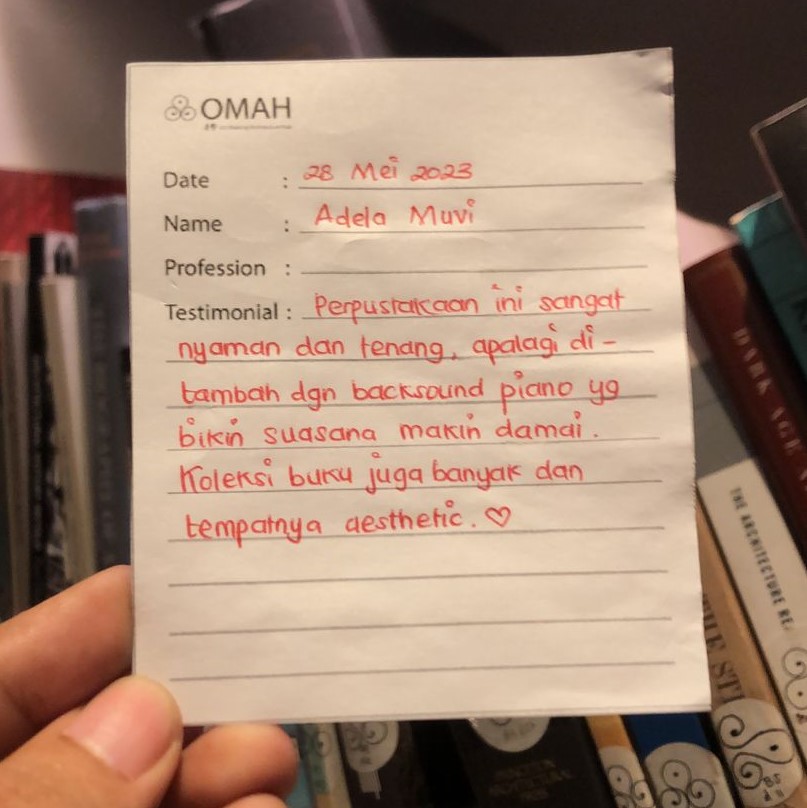 OMAH
Date : 28 Mei 2023
Name : Adela Muvi
Profession :
Testimonial : Perpustakaan ini sangat
nyaman dan tenang, apalagi di-
tambah dgn backsound piano yg
bikin suasana makin damai.
Koleksi buku juga banyak dan
tempatnya aesthetic. ♡
DARK AGE
THE ARCHITECTURE RE
THE ST